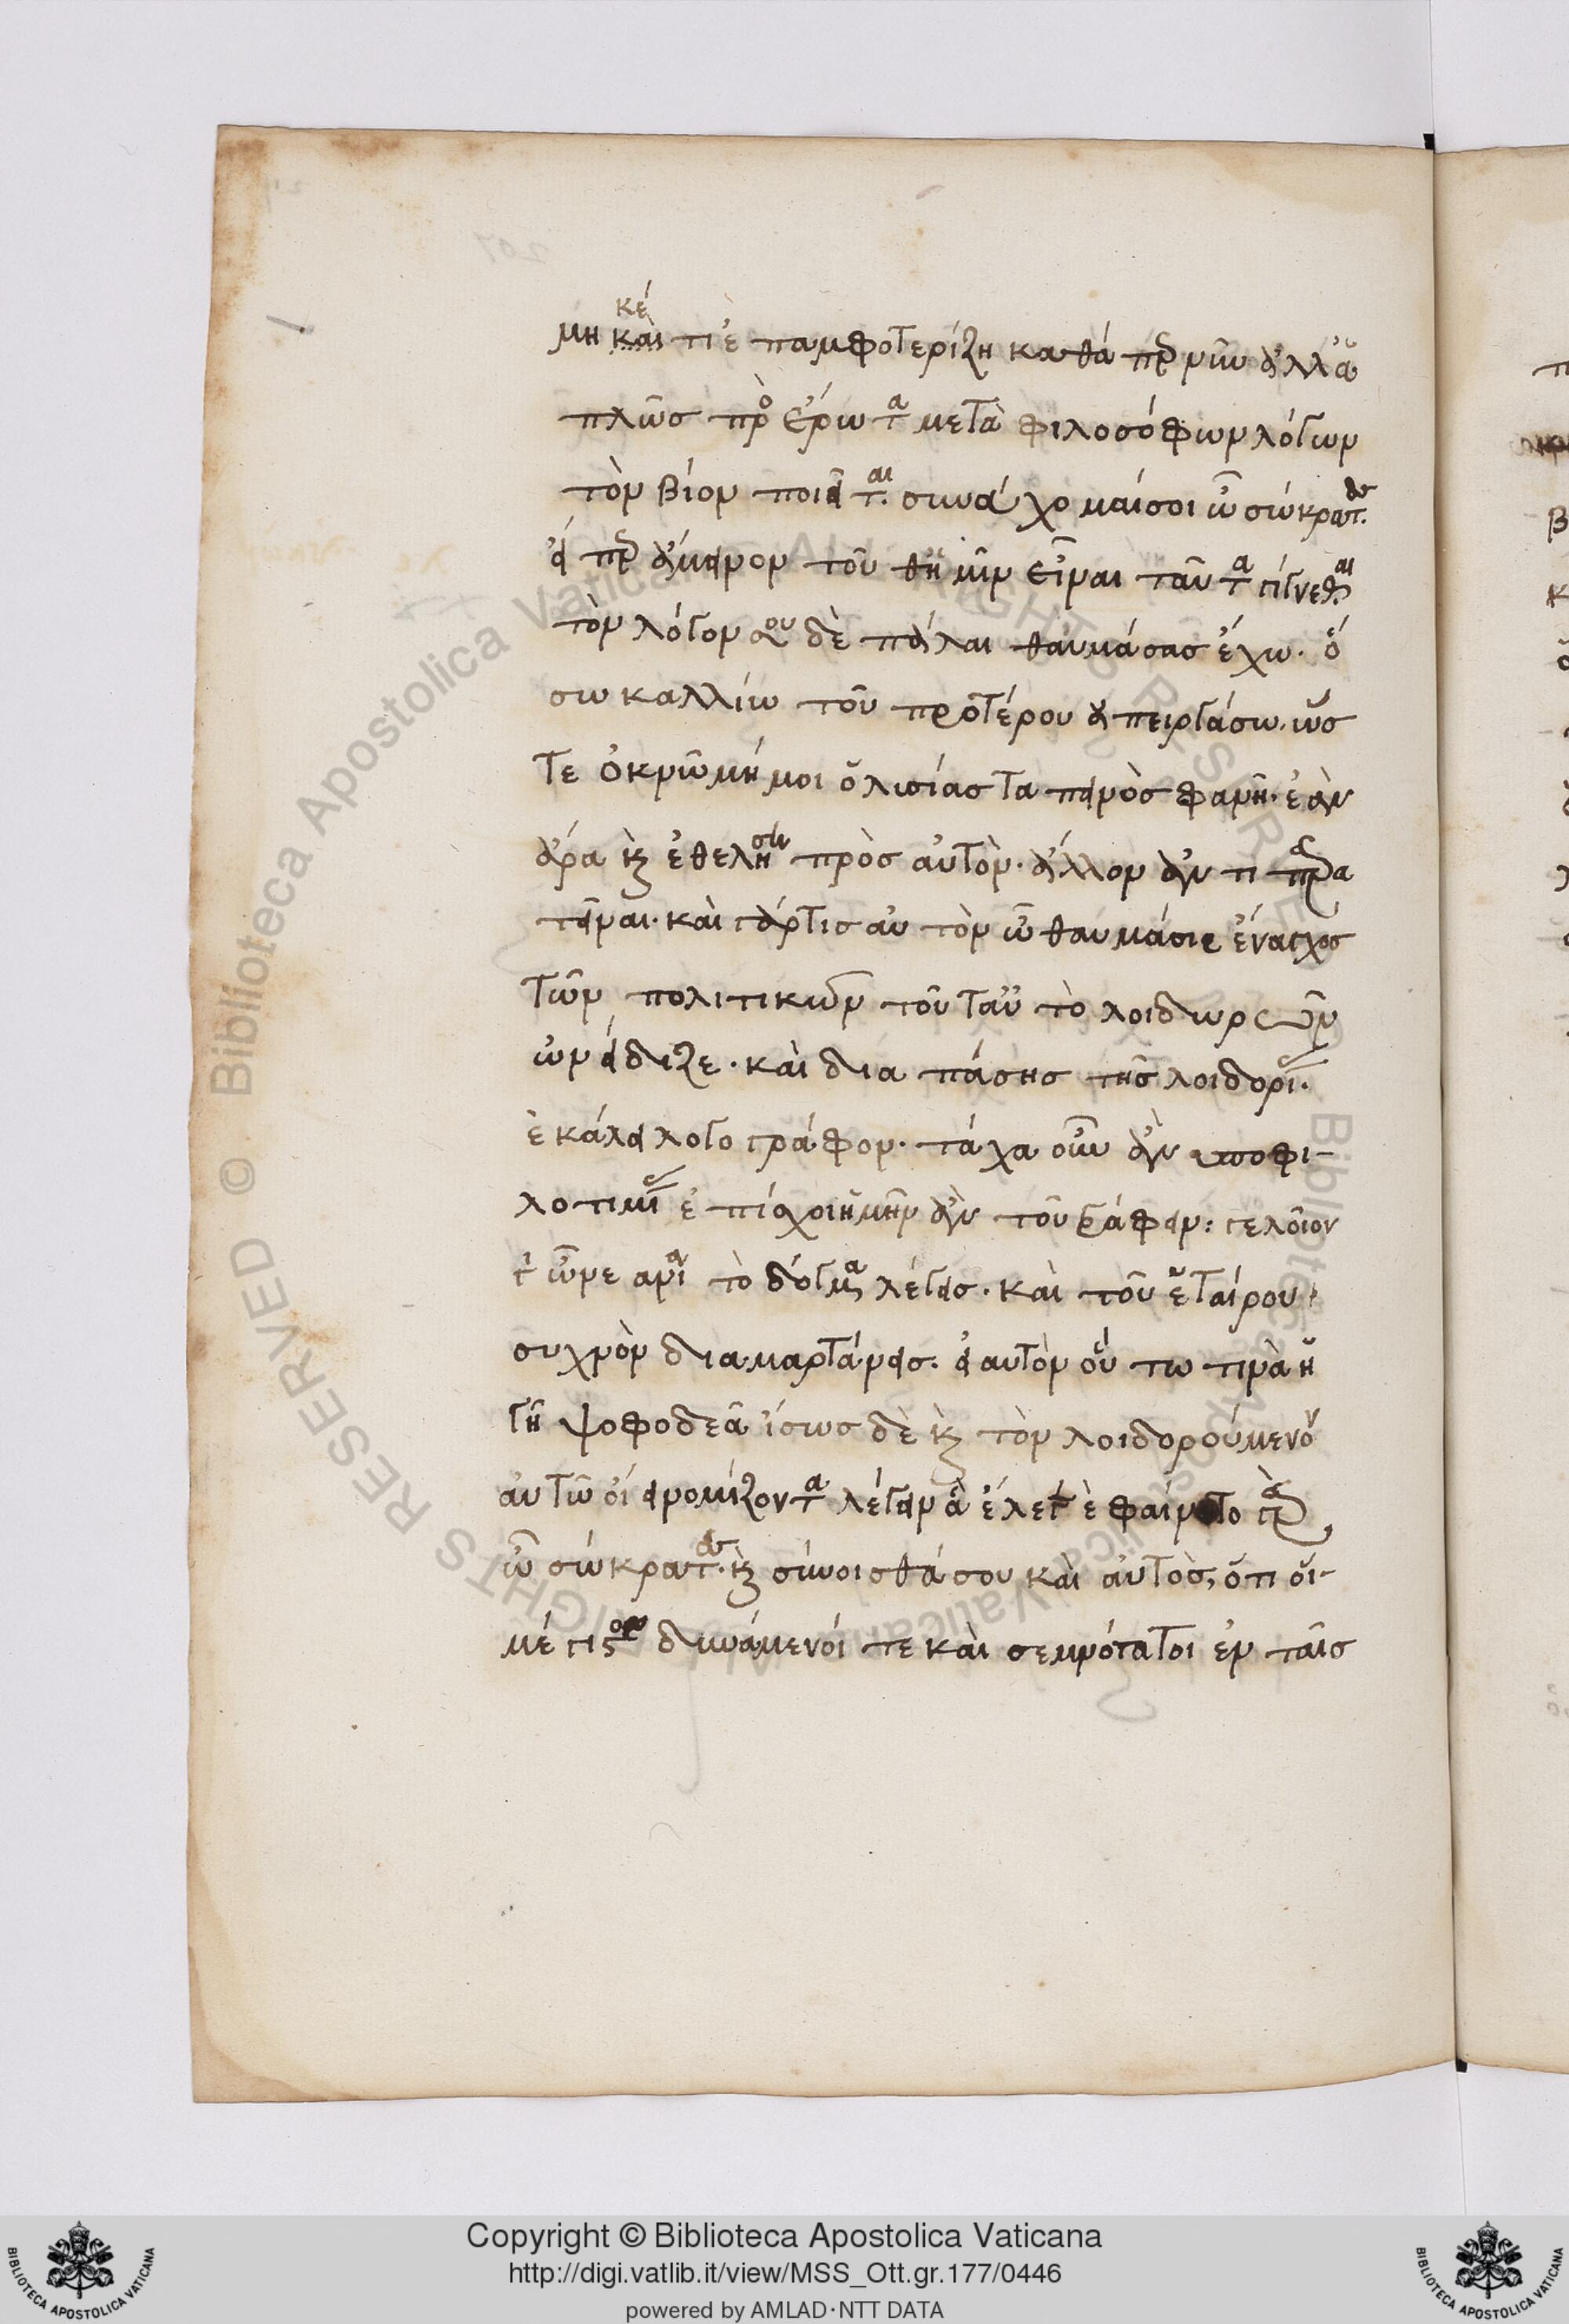 κέ
μη καὶ τι ἐπαμφοτερίζη καθάπερ νῦν ἀλλ' ἁ
πλῶσ πρὸσ ἔρωτα μετὰ φιλοσόφων λόγων
τὸν βίον ποιεῖται. συνεύχομαί σοι ὦ σώκρατεσ.
εἴπερ ἄμεινον τοῦθ' ἡμῖν εἶναι ταῦτα γίγνεσθαι
τὸν λόγον σου δὲ πάλαι θαυμάσασ ἔχω. ὅ
σω καλλίω τοῦ προτέρου ἀπειργάσω. ὥσ
τε ὀκνῶ μή μοι ὁ λυσίασ ταπεινὸσ φανῆ. ἐὰν
ἄρα καὶ ἐθελήση πρὸσ αὐτὸν. ἄλλον ἀντιπαρα
τεῖναι. καὶ γάρ τισ αὐτὸν ὦ θαυμάσιε ἔναγχοσ
τῶν πολιτικῶν τοῦτ' αὐτὸ λοιδωρῶν
ὠνείδιζε. καὶ δια πάσησ τῆσ λοιδορίασ.
ἐκάλει λογογράφον. τάχα οὖν ἂν ὑπο φι-
λοτιμίασ ἐπίσχοι ἡμῖν ἂν τοῦ γράφειν: γελοῖον
γ' ὦ νεανία τὸ δόγμα λέγεισ. καὶ τοῦ ἑταίρου
συχνὸν διαμαρτάνεισ. εἰ αυτὸν οὕτω τινὰ ἡ
γῆ ψοφοδεᾶ ἴσωσ δὲ καὶ τὸν λοιδορούμενον
αὐτῶ οἴει νομίζοντα λέγειν ἃ ἔλεγε ἐφαίνετο γὰρ
ὦ σώκρατεσ. καὶ σύνοισθά σου καὶ αὐτὸσ, ὅτι οἱ
μέγιστον δυνάμενοί τε καὶ σεμνότατοι ἐν ταῖσ
Copyright © Biblioteca Apostolica Vaticana
http://digi.vatlib.it/view/MSS_Ott.gr.177/0446
powered by AMLAD·NTT DATA